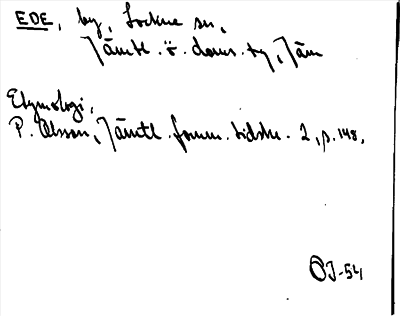 EDE, by, Lockne sn,
Jämtl. ö. doms. ty, Jäm
Etymologi,
P. Olsson, Jämtl. fornm. tidskr. 2, p. 148,
ÖJ-54